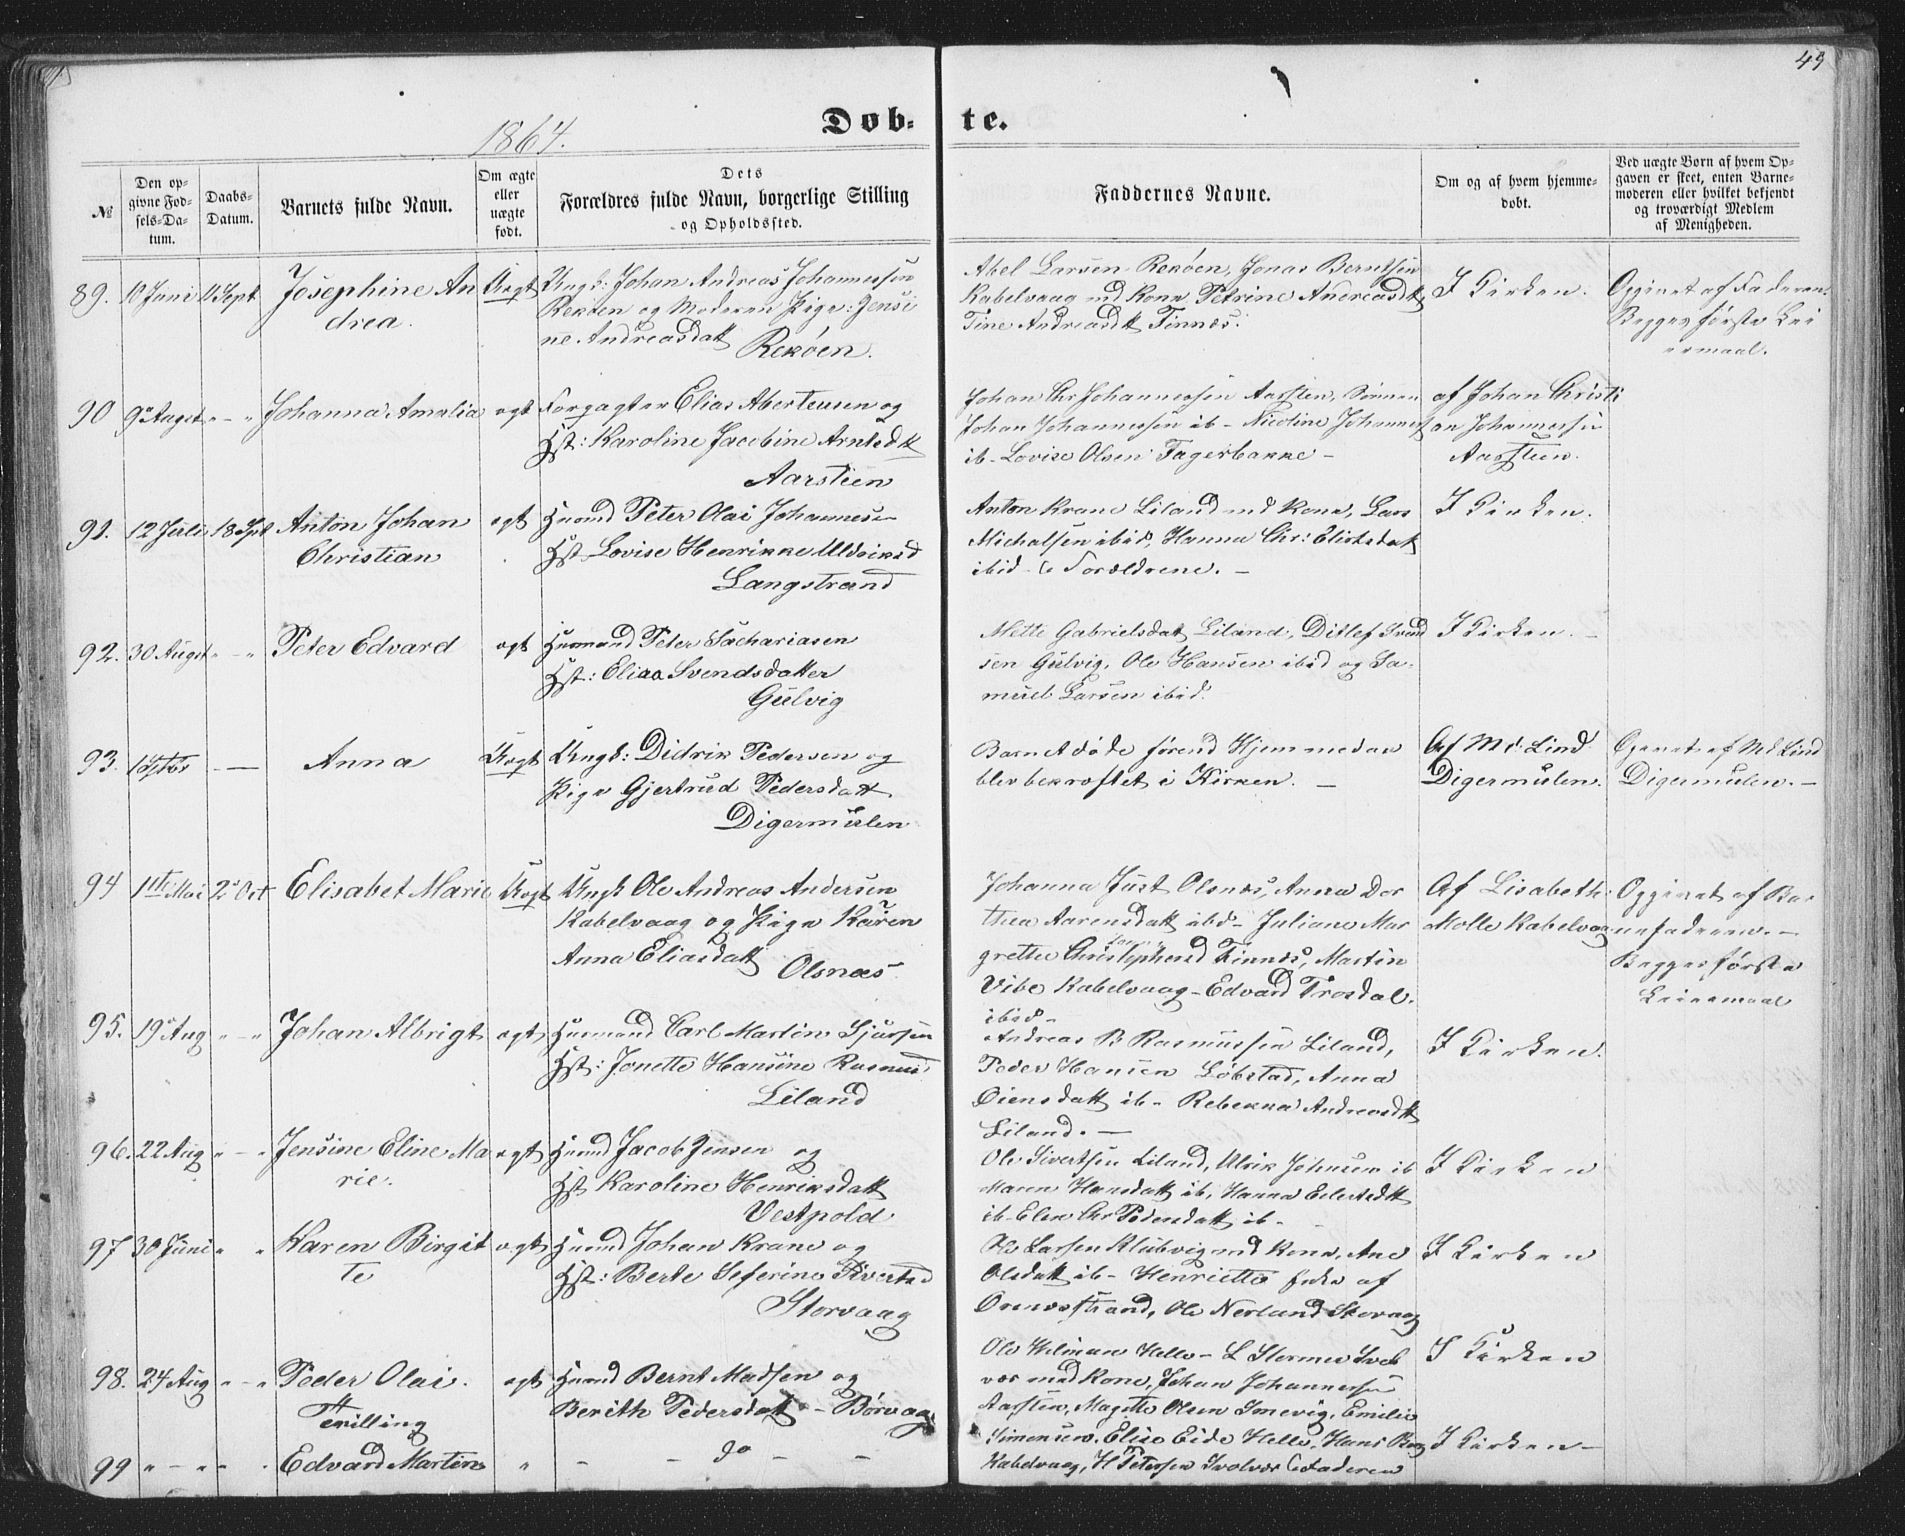 49
1864.
Døb- te.
№
Den op-
givne Fød-
sels-Da-
tum.
Daabs-
Datum.
Barnets fulde Navn.
Om ægte
eller
uægte
født.
Dets
Forældres fulde Navn, borgerlige Stilling
og Opholdssted.
Faddernes Navne.
Om og af hvem hjemme-
døbt.
Ved uægte Børn af hvem Op-
gaven er skeet, enten Barne-
moderen eller hvilket bekjendt
og troværdigt Medlem
af Menigheden.
89. 10 Juni 11 Sept. Josephine An
drea.
Uægt
Ungk: Johan Andreas Johannessen
Rekøen og Moderen Pige: Jensi
ne Andreasdatt
Rekøen.
Abel Larsen Rekøen, Jonas Berntsen
Kabelvaag md Kone Petrine Andreasdt
Tine Andreasdt Finnæs.
I Kirken.
Opgivet af Faderen.
Begges første Lei
ermaal.
90 9de August " - " Johanna Amalia ægt
Forpagter Elias Abertsen og
Hst: Karoline Jacobine Arntsdtt
Aarsteen
Johan Chr Johannessen Aarsteen, Sønnen
Johan Johannessen ib - Nicoline Johannes
ib - Lovise Olsen Fagerbakke -
af Johan Christi
an Johannessen
Aarsteen.
91. 12 Juli 18 Spt Anton Johan
Christian
ægt
Husmd Peter Olai Johannesen
Hst Lovise Henrikke Uldriksd
Langstrand
Anton Krane Liland md Kone, Lars
Michalsen ibid, Hanna Chr: Eliasdatt
ibid - & Forældrene. -
I Kirken.
92. 30 August " - " Peter Edvard ægt
Husmand Peter Sachariasen
Hst: Elisa Svendsdatter
Gulvig
Mette Gabrielsdatt Liland, Ditlef Svend
sen Gulvig, Ole Hansen ibid og Sa-
muel Larsen ibid.
I Kirken. -
93. - Anna Uægt
Ungk: Didrik Pedersen og
Pige Gjertrud Pedersdatt
Digermulen
Barnet døde førend Hjemmedaaben
blev bekræftet i Kirken. -
Af Md: Lind
Digermulen.
Opgivet af Md Lind
Digermulen. -
94 1ste Mai 2 Oct Elisabet Marie Uægt
Ungk Ole Andreas Andersen
Kabelvaag og Pige Karen
Anna Eliasdatt
Olsnæs
Johanna Just Olsnæs, Anna Dor
thea Aarensdatt ibid - Juliane Mar
grethe Christophersd Finnæs, Martin
Vibe Kabelvaag - Edvard Trosdal
ibid -
Af Lisabeth
Molle Kabelvaag
Opgivet af Bar
nefaderen. -
Begges første
Leiermaal
95. 19 Aug " - " Johan Albrigt ægt
Husmand Carl Martin Sjursen
Hst: Jonette Hansine Rasmusd
Liland
Andreas B Rasmussen Liland,
Peder Hansen Løbstad, Anna
Oiensdatt ib - Rebekka Andreasdt
Liland. -
I Kirken.
96. 22 Aug " - " Jensine Eline Ma
rie.
ægt
Husmd Jacob Jensen og
Hst Karoline Henriksdatt
Vestpold
Ole Sivertsen Liland, Ulrik Johnsen ib
Maren Hansdatt ib, Hanna
ib - Elen Chr Pedersdatt ib -
I Kirken
97 30 Juni " " Karen Birgit
te
ægt
Husmd Johan Krane og
Hst: Berte Seferine Siversd
Storvaag
Ole Larsen Klubvig md Kone, Ane
Olsdatt ib - Henriette Enke af
Ørnesstrand, Ole Nerland Storvaag
I Kirken
98. 24 Aug " - " Peder Olai.
Tvilling
ægt
Husmd Bernt Madsen og
Berith Pedersdatt - Børvaag
Ole Wilman Helle - L Stormer Svol
vær med Kone, Johan Johannesen
Aarsteen, Magitte Olsen Smevig, Emilie
I Kirken
99 " - " - " " Edvard Martin " - - do - -
Simonsen, Elise Eide Helle, Hans Berg
Kabelvaag, H Petersen Svolvær & Faderen
I Kirken -